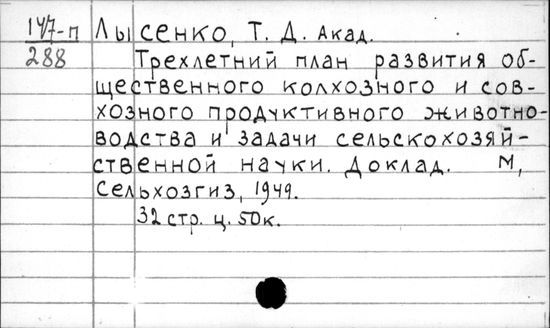 147-п Лысенко, Т. Д. Акад.
288 Трехлетний план развития об-
щественного колхозного и сов-
хозного продуктивного животно-
водства и задачи сельскохозяй-
ственной науки. Доклад. М,
Сельхозгиз, 1949.
32 стр. ц. 50к.